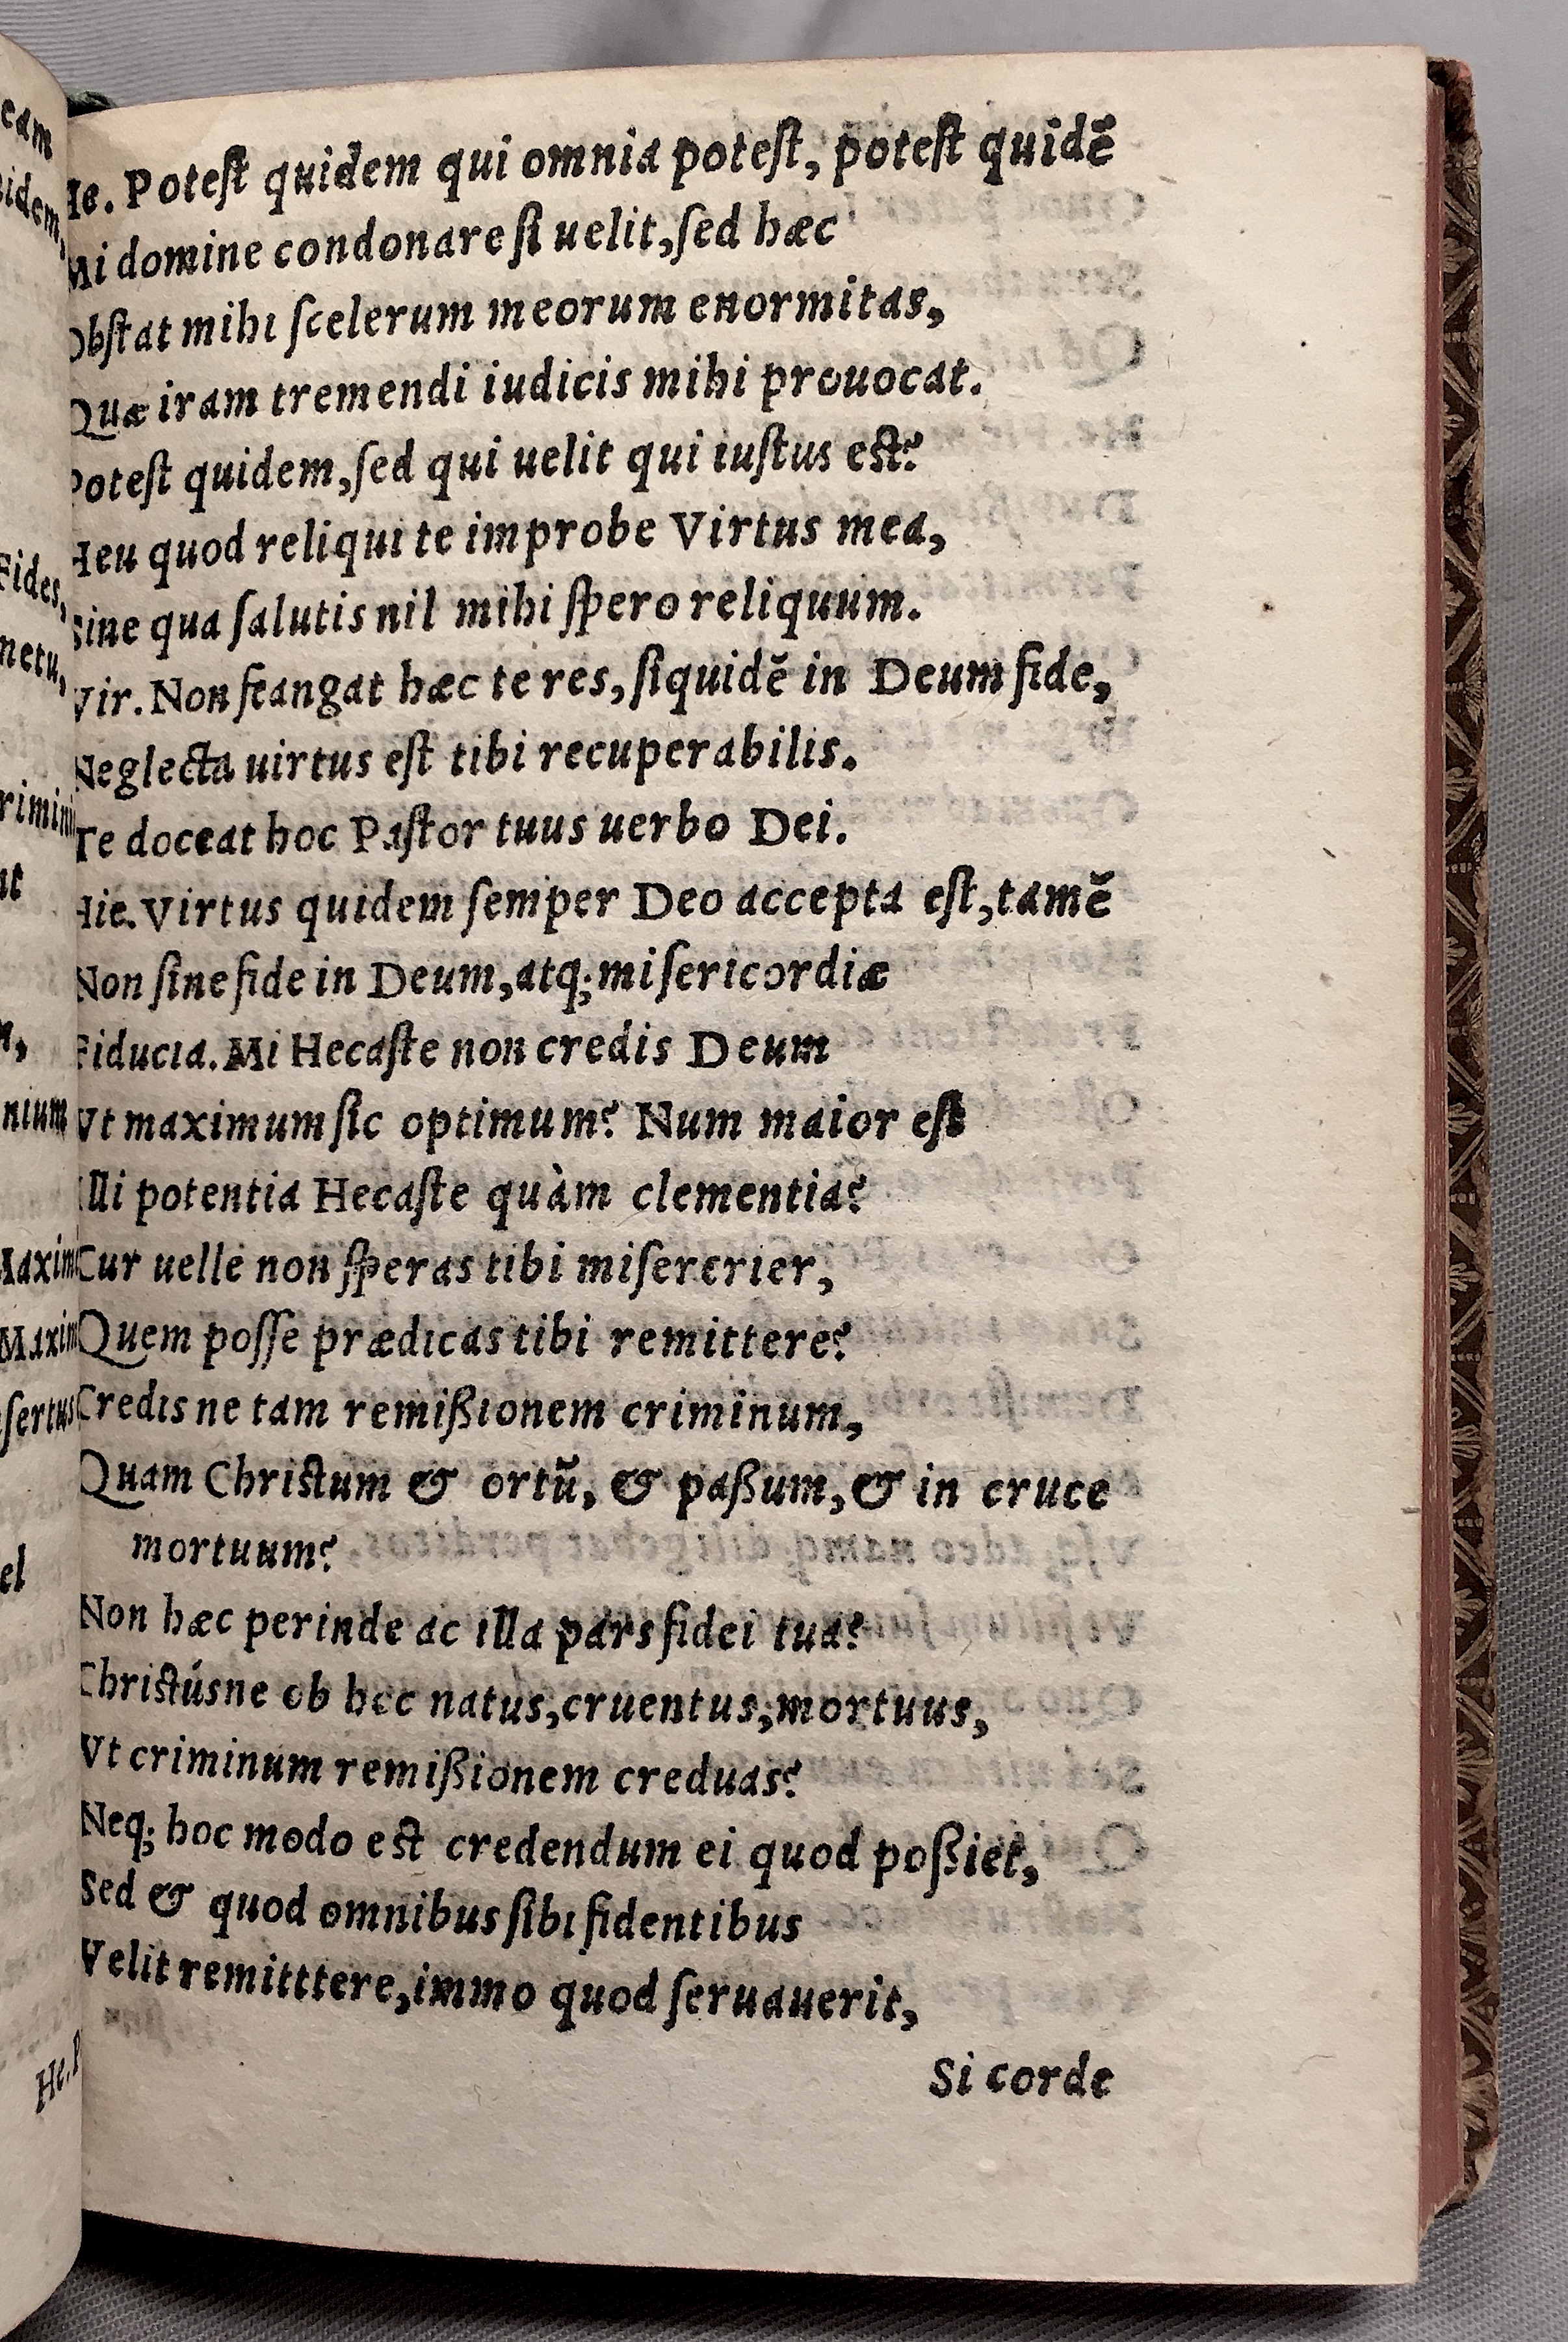 He. Poteſt quidem qui omnia poteſt, poteſt quidē
Mi domine condonare ſi uelit, ſed hæc
Obſtat mihi ſcelerum meorum enormitas,
Quæ iram tremendi iudicis mihi prouocat.
Poteſt quidem, ſed qui uelit qui iuſtus eſt?
Heu quod reliqui te improbe Virtus mea,
Sine qua ſalutis nil mihi ſpero reliquum.
Vir. Non feangat hæc te res, ſiquidē in Deum fide,
Neglecta uirtus eſt tibi recuperabilis.
Te doceat hoc Paſtor tuus uerbo Dei.
Hie. Virtus quidem ſemper Deo accepta eſt, tamē
Non ſine fide in Deum, atq; miſericordiæ
Fiducia. Mi Hecaſte non credis Deum
Vt maximum ſic optimum? Num maior eſt
Illi potentia Hecaſte quàm clementia?
Cur uelle non ſperas tibi miſererier,
Quem poſſe prædicas tibi remittere?
Credis ne tam remißionem criminum,
Quam Chriſtum & ortū, & paßum, & in cruce
mortuum?
Non hæc perinde ac illa pars fidei tua?
Chriſtúsne ob hoc natus, cruentus, mortuus,
Vt criminum remißionem creduas?
Neq; hoc modo eſt credendum ei quod poßiet,
Sed & quod omnibus ſibi fidentibus
Velit remitttere, immo quod ſeruauerit,
Si corde